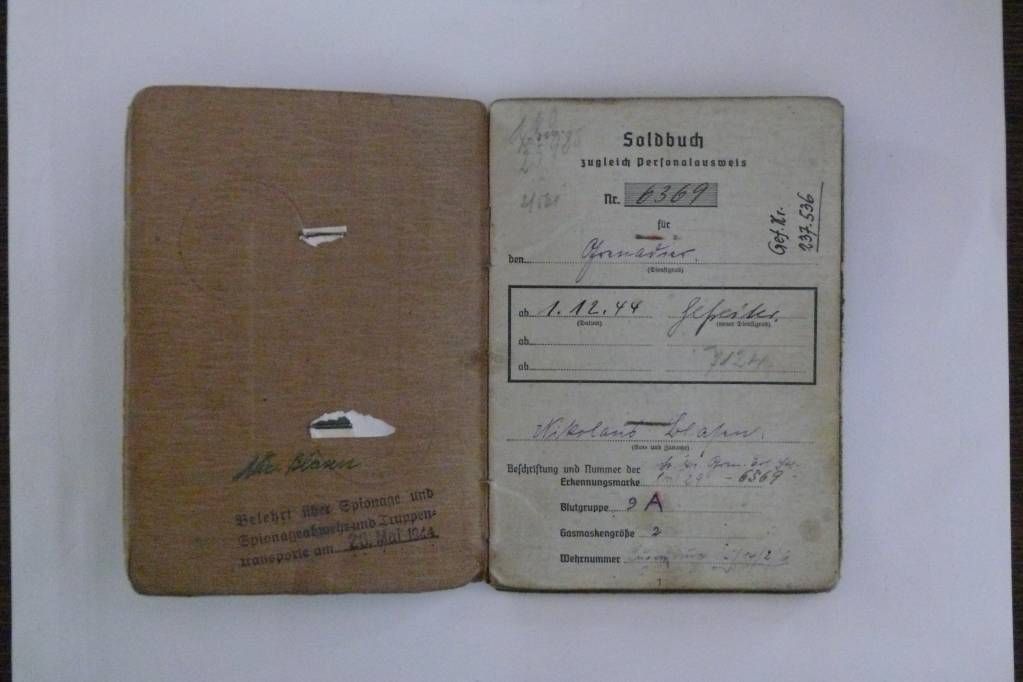 Nic. Blasen
Belehrt über Spionage und
Spionageabwehr und Truppen-
transporte am 20. Mai 1944
Soldbuch
zugleich Personalausweis
Nr. 6369
Gef. Nr.
237.536
für
den Grenadier.
(Dienstgrad)
ab 1.12.44 Gefreiter.
(Datum) (neuer Dienstgrad)
ab
ab 7124
Nikolaus Blasen.
(Vor- und Zuname)
Beschriftung und Nummer der
Erkennungsmarke - 6369 -
Blutgruppe A
Gasmaskengröße 2
Wehrnummer Luxemburg
1